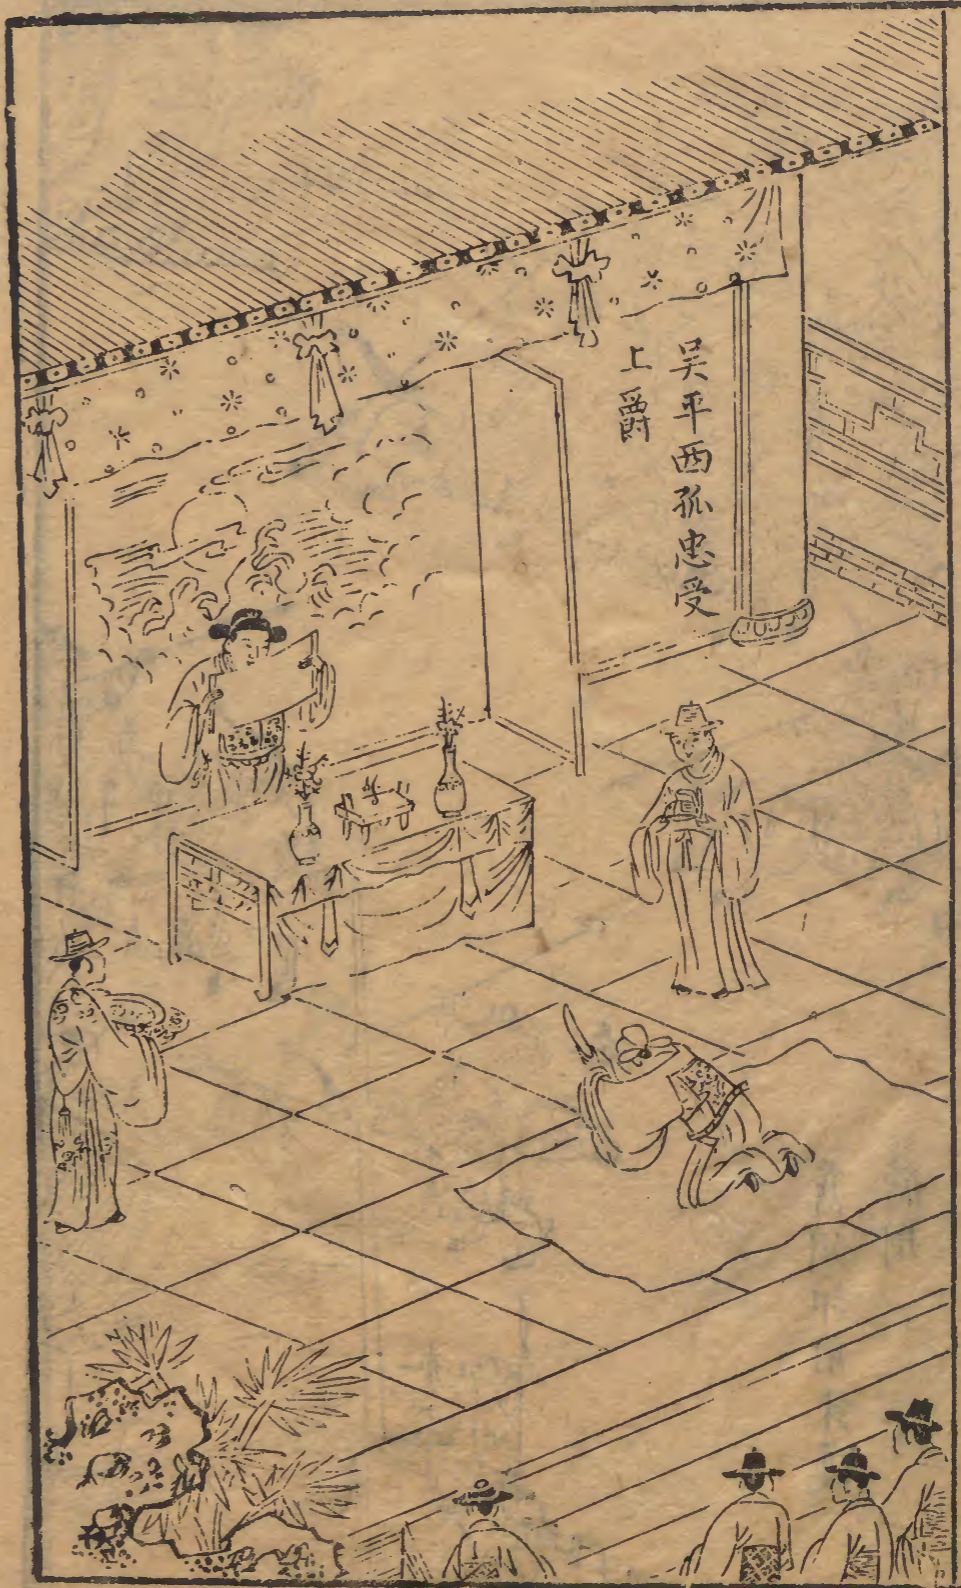 吴平西孤忠受
上爵